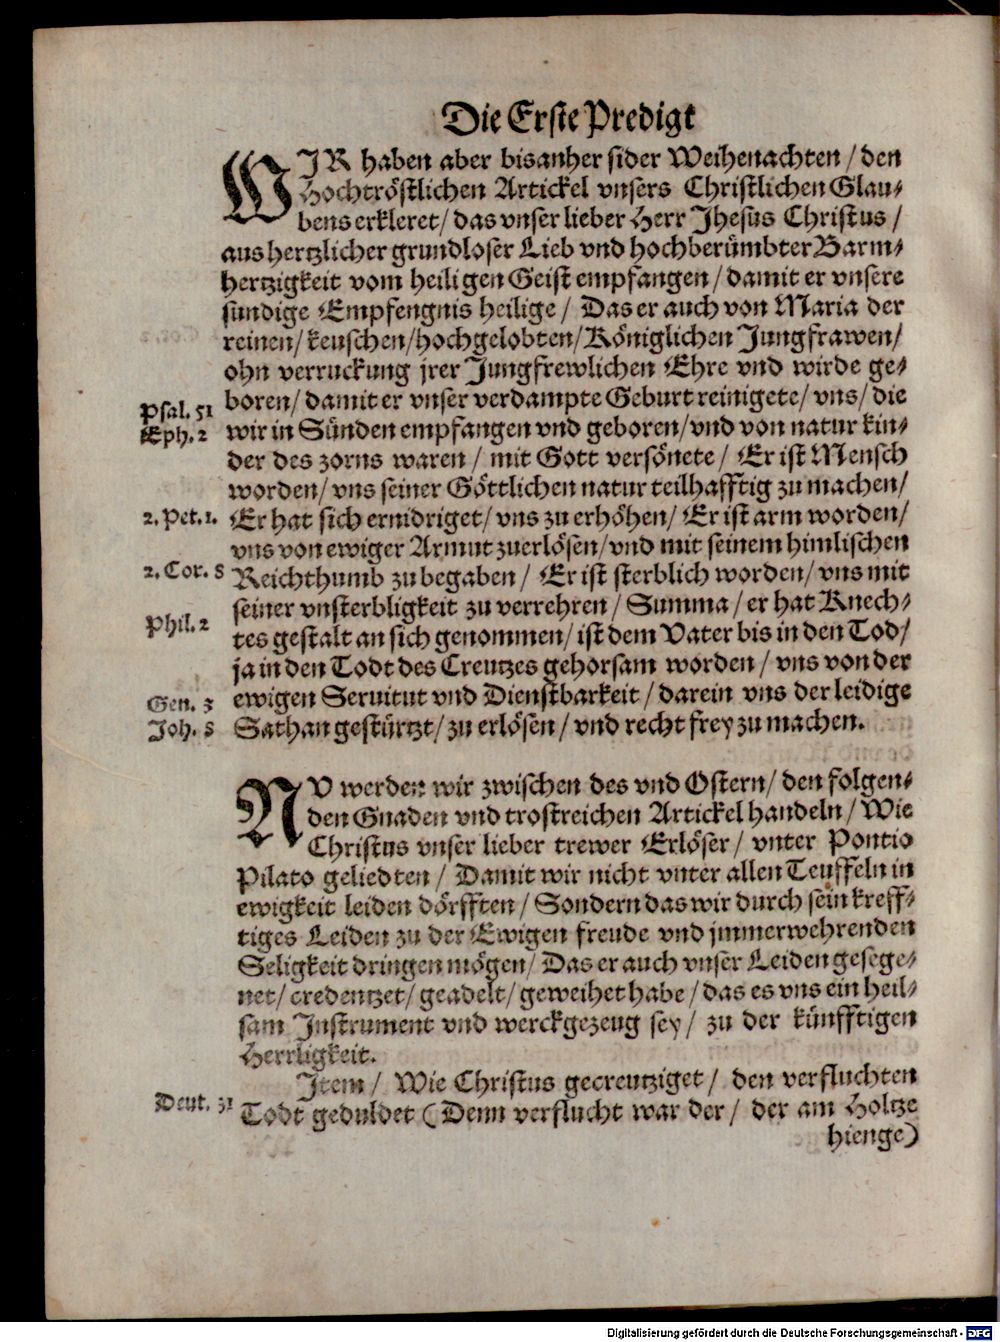 Die Erste Predigt
WJR haben aber bisanher sider Weihenachten / den
Hochtröstlichen Artickel vnsers Christlichen Glau-
bens erkleret / das vnser lieber Herr Jhesus Christus /
aus hertzlicher grundloser Lieb vnd hochberümbter Barm-
hertzigkeit vom heiligen Geist empfangen / damit er vnsere
sündige Empfengnis heilige / Das er auch von Maria der
reinen / keuschen / hochgelobten / Königlichen Jungfrawen /
ohn verruckung jrer Jungfrewlichen Ehre vnd wirde ge-
boren / damit er vnser verdampte Geburt reinigete / vns / die
Psal. 51
Eph. 2
wir in Sünden empfangen vnd geboren / vnd von natur kin-
der des zorns waren / mit Gott versönete / Er ist Mensch
worden / vns seiner Göttlichen natur teilhafftig zu machen /
2. Pet. 1.
Er hat sich ernidriget / vns zu erhöhen / Er ist arm worden /
vns von ewiger Armut zuerlösen / vnd mit seinem himlischen
2. Cor. 8
Reichthumb zu begaben / Er ist sterblich worden / vns mit
seiner vnsterbligkeit zu verrehren / Summa / er hat Knech-
Phil. 2
tes gestalt an sich genommen / ist dem Vater bis in den Tod /
ja in den Todt des Creutzes gehorsam worden / vns von der
ewigen Seruitut vnd Dienstbarkeit / darein vns der leidige
Gen. 3
Joh. 8
Sathan gestürtzt / zu erlösen / vnd recht frey zu machen.
NV werden wir zwischen des vnd Ostern / den folgen-
den Gnaden vnd trostreichen Artickel handeln / Wie
Christus vnser lieber trewer Erlöser / vnter Pontio
Pilato geliedten / Damit wir nicht vnter allen Teuffeln in
ewigkeit leiden dörfften / Sondern das wir durch sein kreff-
tiges Leiden zu der Ewigen freude vnd jmmerwehrenden
Seligkeit dringen mögen / Das er auch vnser Leiden gesege-
net / credentzet / geadelt / geweihet habe / das es vns ein heil-
sam Instrument vnd werckgezeug sey / zu der künfftigen
Herrligkeit.
Item / Wie Christus gecreutziget / den verfluchten
Deut. 31
Todt geduldet (Denn verflucht war der / der am Holtze
hienge)
Digitalisierung gefördert durch die Deutsche Forschungsgemeinschaft - DFG